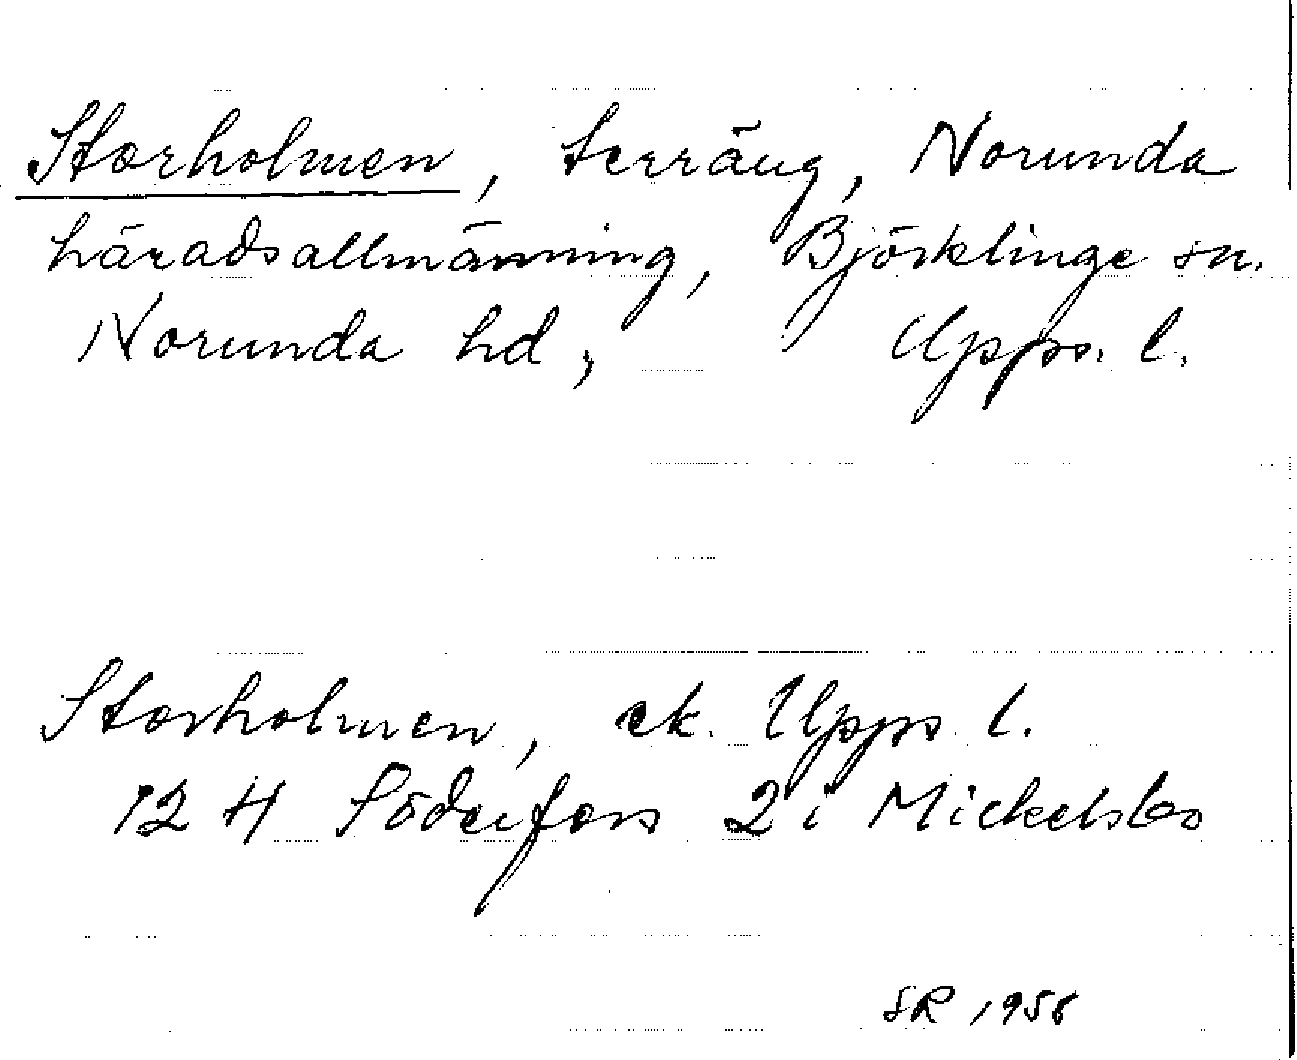 Storholmen, terräng, Norunda
häradsallmänning, Björklinge sn.
Norunda hd, Upps. l.
Storholmen, ek. Upps l.
12 H Söderfors 2 i Mickelsbo
SR 1956